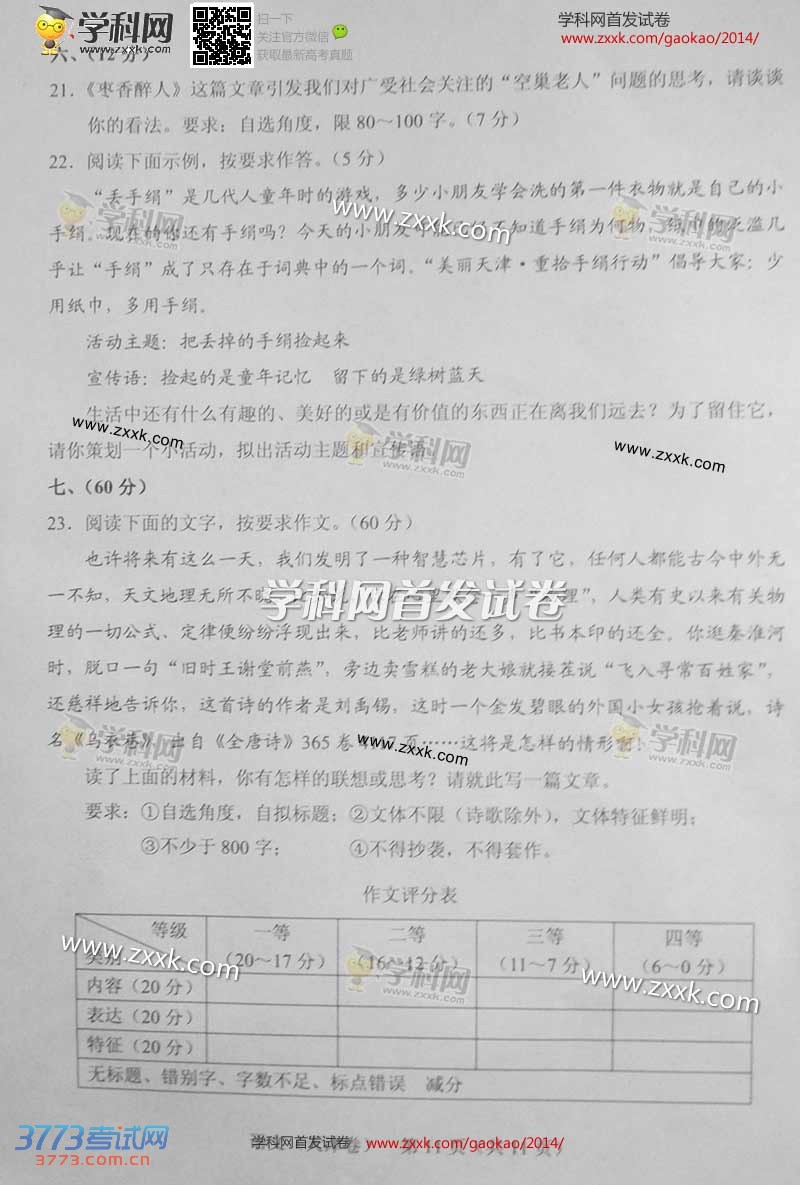 学科网
扫一下
关注官方微信
获取最新高考真题
学科网首发试卷
www.zxxk.com/gaokao/2014/
六、(12分)
21.《枣香醉人》这篇文章引发我们对广受社会关注的“空巢老人”问题的思考,请谈谈
你的看法。要求:自选角度,限80~100字。(7分)
22.阅读下面示例,按要求作答。(5分)
“丢手绢”是几代人童年时的游戏,多少小朋友学会洗的第一件衣物就是自己的小
学科网 www.zxxk.com 学科网
手绢。现在的你还有手绢吗?今天的小朋友 不知道手绢为何物。 泛滥几
乎让“手绢”成了只存在于词典中的一个词。“美丽天津·重拾手绢行动”倡导大家:少
用纸巾,多用手绢。
活动主题:把丢掉的手绢捡起来
宣传语:捡起的是童年记忆 留下的是绿树蓝天
生活中还有什么有趣的、美好的或是有价值的东西正在离我们远去?为了留住它,
www.zxxk.com 学科网 www.zxxk.com
请你策划一个小活动,拟出活动主题和宣传语。
七、(60分)
23.阅读下面的文字,按要求作文。(60分)
也许将来有这么一天,我们发明了一种智慧芯片,有了它,任何人都能古今中外无
一不知,天文地理无所不晓。 理”,人类有史以来有关物
学科网首发试卷
理的一切公式、定律便纷纷浮现出来,比老师讲的还多,比书本印的还全。你逛秦淮河
时,脱口一句“旧时王谢堂前燕”,旁边卖雪糕的老大娘就接茬说“飞入寻常百姓家”,
还慈祥地告诉你,这首诗的作者是刘禹锡,这时一个金发碧眼的外国小女孩抢着说,诗
学科网 www.zxxk.com 学科网
名《乌衣巷》,出自《全唐诗》365卷 17页……这将是怎样的情形啊!
读了上面的材料,你有怎样的联想或思考?请就此写一篇文章。
要求:①自选角度,自拟标题;②文体不限(诗歌除外),文体特征鲜明;
③不少于800字; ④不得抄袭,不得套作。
作文评分表
等级 一等 二等 三等 四等
类别 (20~17分) (16~12分) (11~7分) (6~0分)
www.zxxk.com 学科网 www.zxxk.com
内容(20分)
表达(20分)
特征(20分)
无标题、错别字、字数不足、标点错误 减分
3773考试网
3773.com.cn
学科网首发试卷 www.zxxk.com/gaokao/2014/
第11页